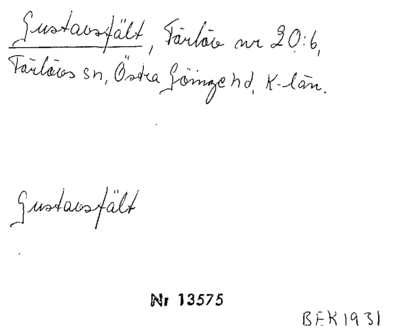 Gustavsfält, Färlöv nr 20:6,
Färlövs sn, Östra Göinge hd, K-län.
Gustavsfält
Nr 13575
BEK 1931